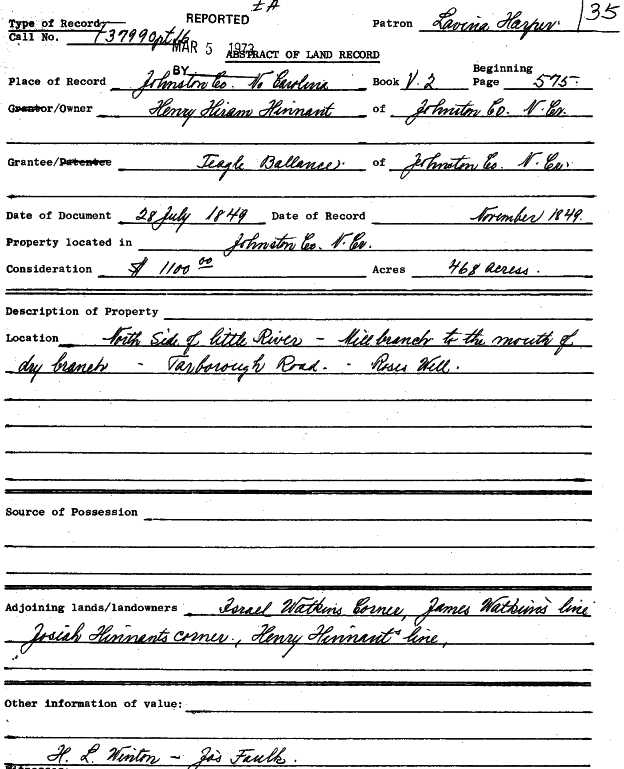 I A
REPORTED
35
Type of Record
Patron Lavina Harper
Call No. F 37990 pt 16
MAR 5 1973
ABSTRACT OF LAND RECORD
BY
Beginning
Place of Record Johnston Co. No Carolina Book V. 2 Page 575.
Grantor/Owner Henry Hiram Hinnant of Johnston Co. N. Ca.
Grantee/Patentee Teagle Ballance. of Johnston Co. N. Ca.
Date of Document 28 July 1849 Date of Record November 1849.
Property located in Johnston Co. N. Ca.
Consideration $ 1100 00 Acres 468 Acress.
Description of Property
Location North Side of little River - Mill branch to the mouth of
dry branch - Tarborough Road. - Roses Well.
Source of Possession
Adjoining lands/landowners Israel Watkins Corner, James Watkins's line
Josiah Hinnants corner., Henry Hinnant's line,
Other information of value:
H. L. Winton - Jos Faulk.